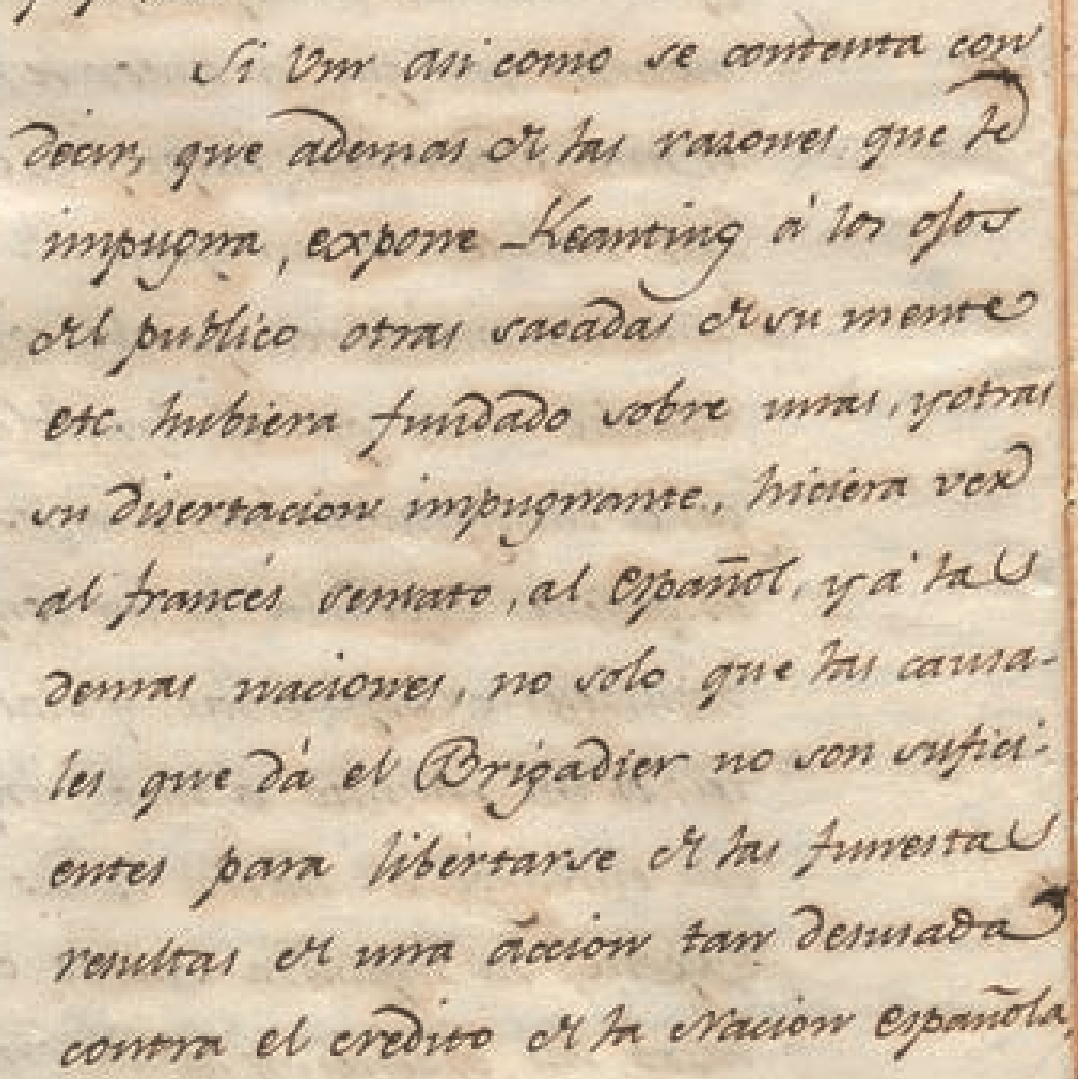 Si Vm asi como se contenta con
decir, que ademas de las razones que le
impugna, expone Keanting á los ojos
del publico otras sacadas de su mente
etc. hubiera fundado sobre unas, y otras
su disertacion impugnante, hiciera ver
al francés sensato, al Español, y á las
demas naciones, no solo que las causa-
les que dá el Brigadier no son sufici-
entes para libertarse de las funestas
resultas de una accion tan desusada
contra el credito de la Nacion Española,